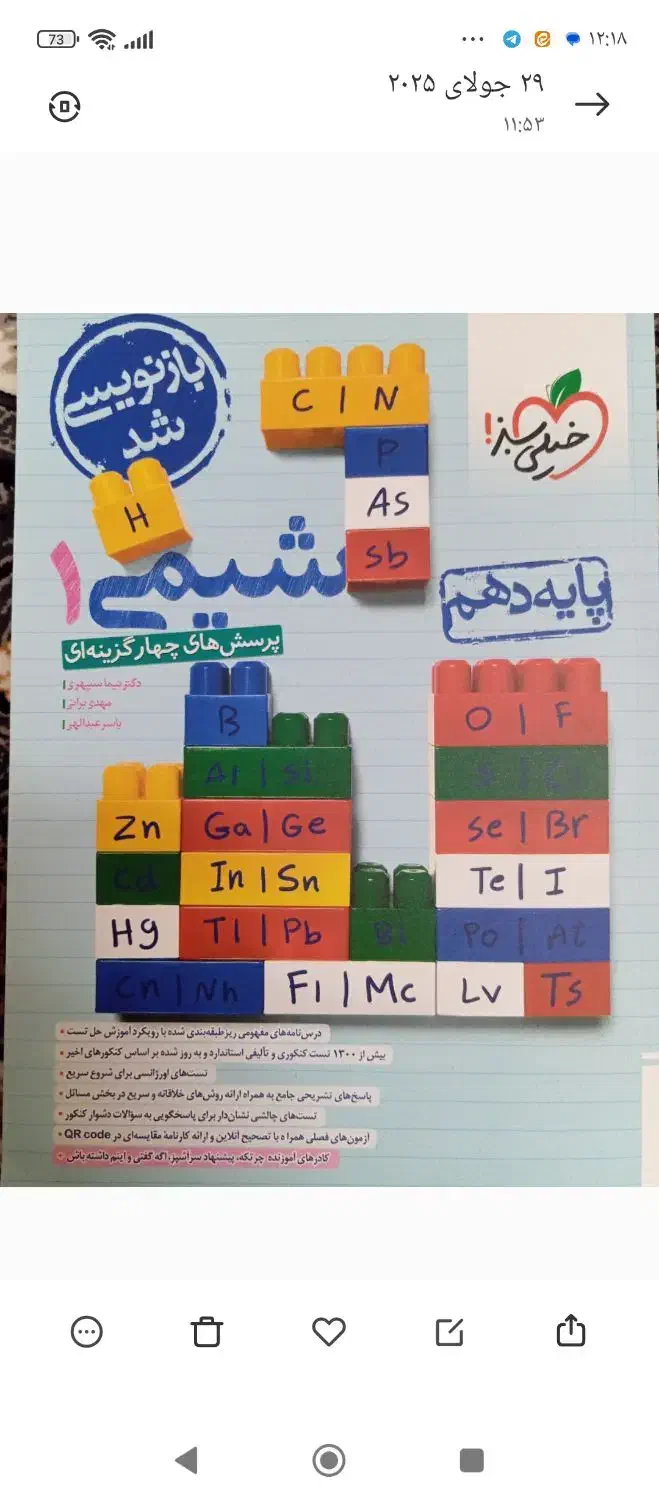 73
۱۲:۱۸
۲۹ جولای ۲۰۲۵
۱۱:۵۳
بازنویسی
شد
C | N
P
As
Sb
خیلی سبز!
H
شیمی ۱
پایه دهم
پرسش‌های چهارگزینه‌ای
دکتر نیما سپهری
مهدی براتی
یاسر عبدالهی
B
O | F
Al | Si
Zn
Ga | Ge
Se | Br
Cd
In | Sn
Te | I
Hg
Tl | Pb
Bi
Po | At
Cn | Nh
Fl | Mc
Lv
Ts
درس‌نامه‌های مفهومی ریز طبقه‌بندی شده با رویکرد آموزش حل تست
بیش از ۱۳۰۰ تست کنکوری و تألیفی استاندارد و به روز شده بر اساس کنکورهای اخیر
تست‌های اورژانسی برای شروع سریع
پاسخ‌های تشریحی جامع به همراه ارائه روش‌های خلاقانه و سریع در بخش مسائل
تست‌های چالشی نشان‌دار برای پاسخگویی به سؤالات دشوار کنکور
آزمون‌های فصلی همراه با تصحیح آنلاین و ارائه کارنامهٔ مقایسه‌ای در QR code
کادرهای آموزنده چرتکه، پیشنهاد سرآشپز، اگه گفتی و اینم داشته باش